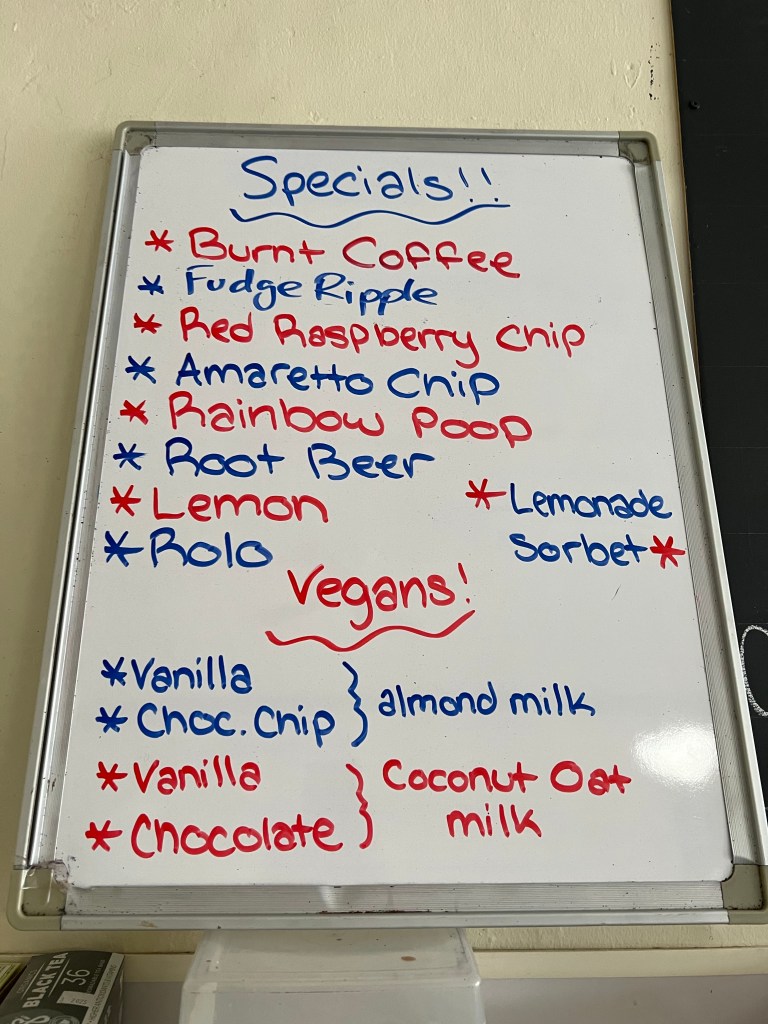 Specials!!
* Burnt Coffee
* Fudge Ripple
* Red Raspberry Chip
* Amaretto Chip
* Rainbow Poop
* Root Beer
* Lemon
* Rolo
* Lemonade
Sorbet *
Vegans!
* Vanilla
* Choc. Chip } almond milk
* Vanilla
* Chocolate } Coconut Oat
milk
BLACK TEA
36